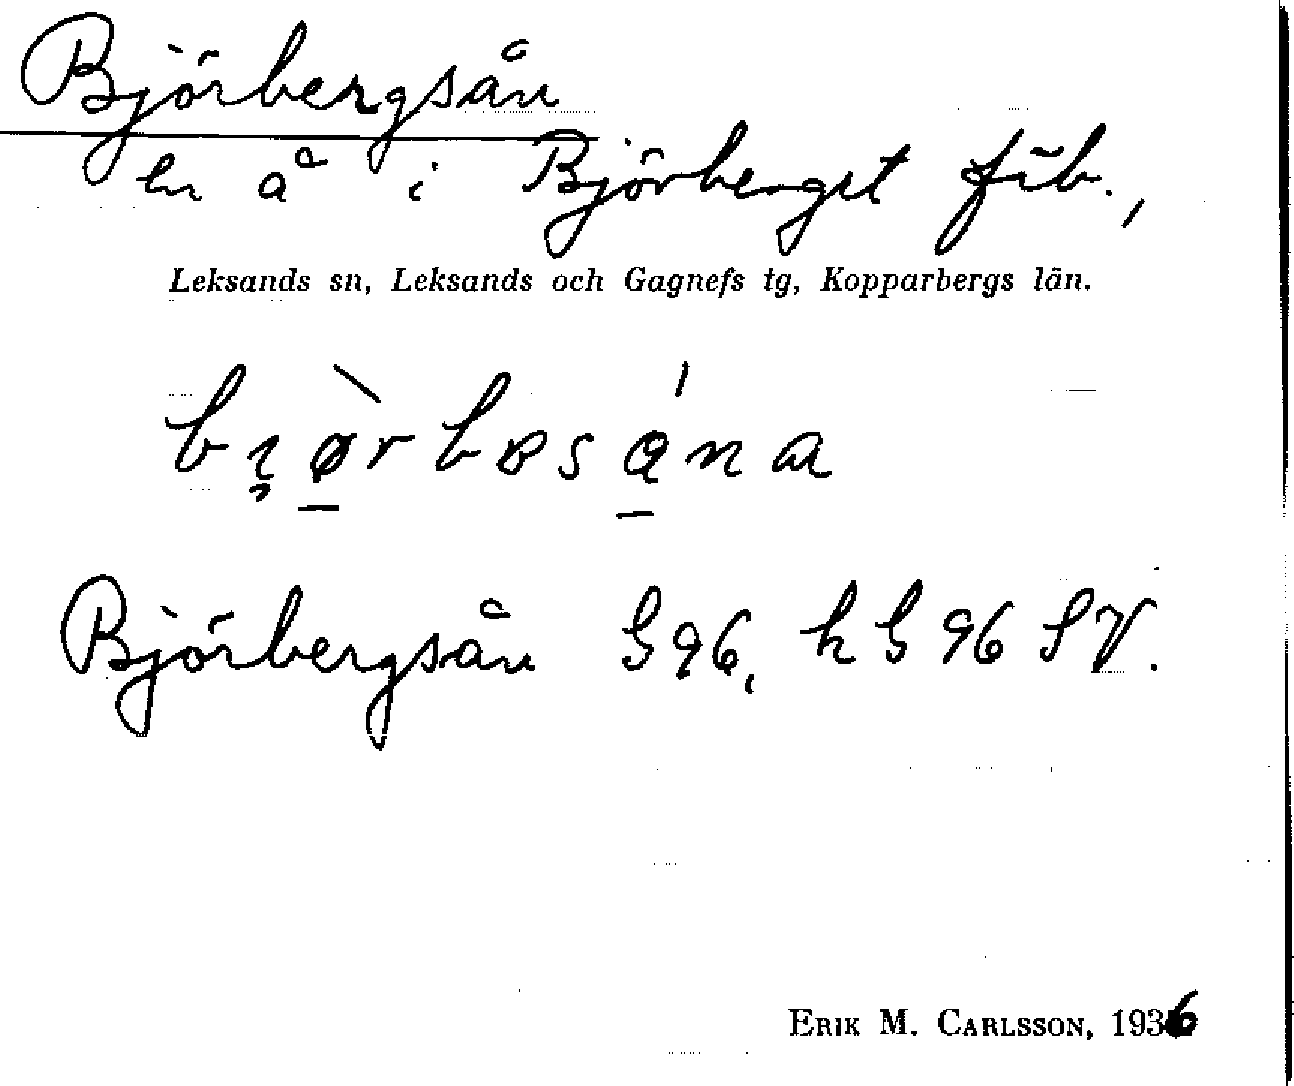 Björbergsån
ln å i Björberget fäb.,
Leksands sn, Leksands och Gagnefs tg, Kopparbergs län.
Björbergsån G96, h G 96 SV.
ERIK M. CARLSSON, 1936